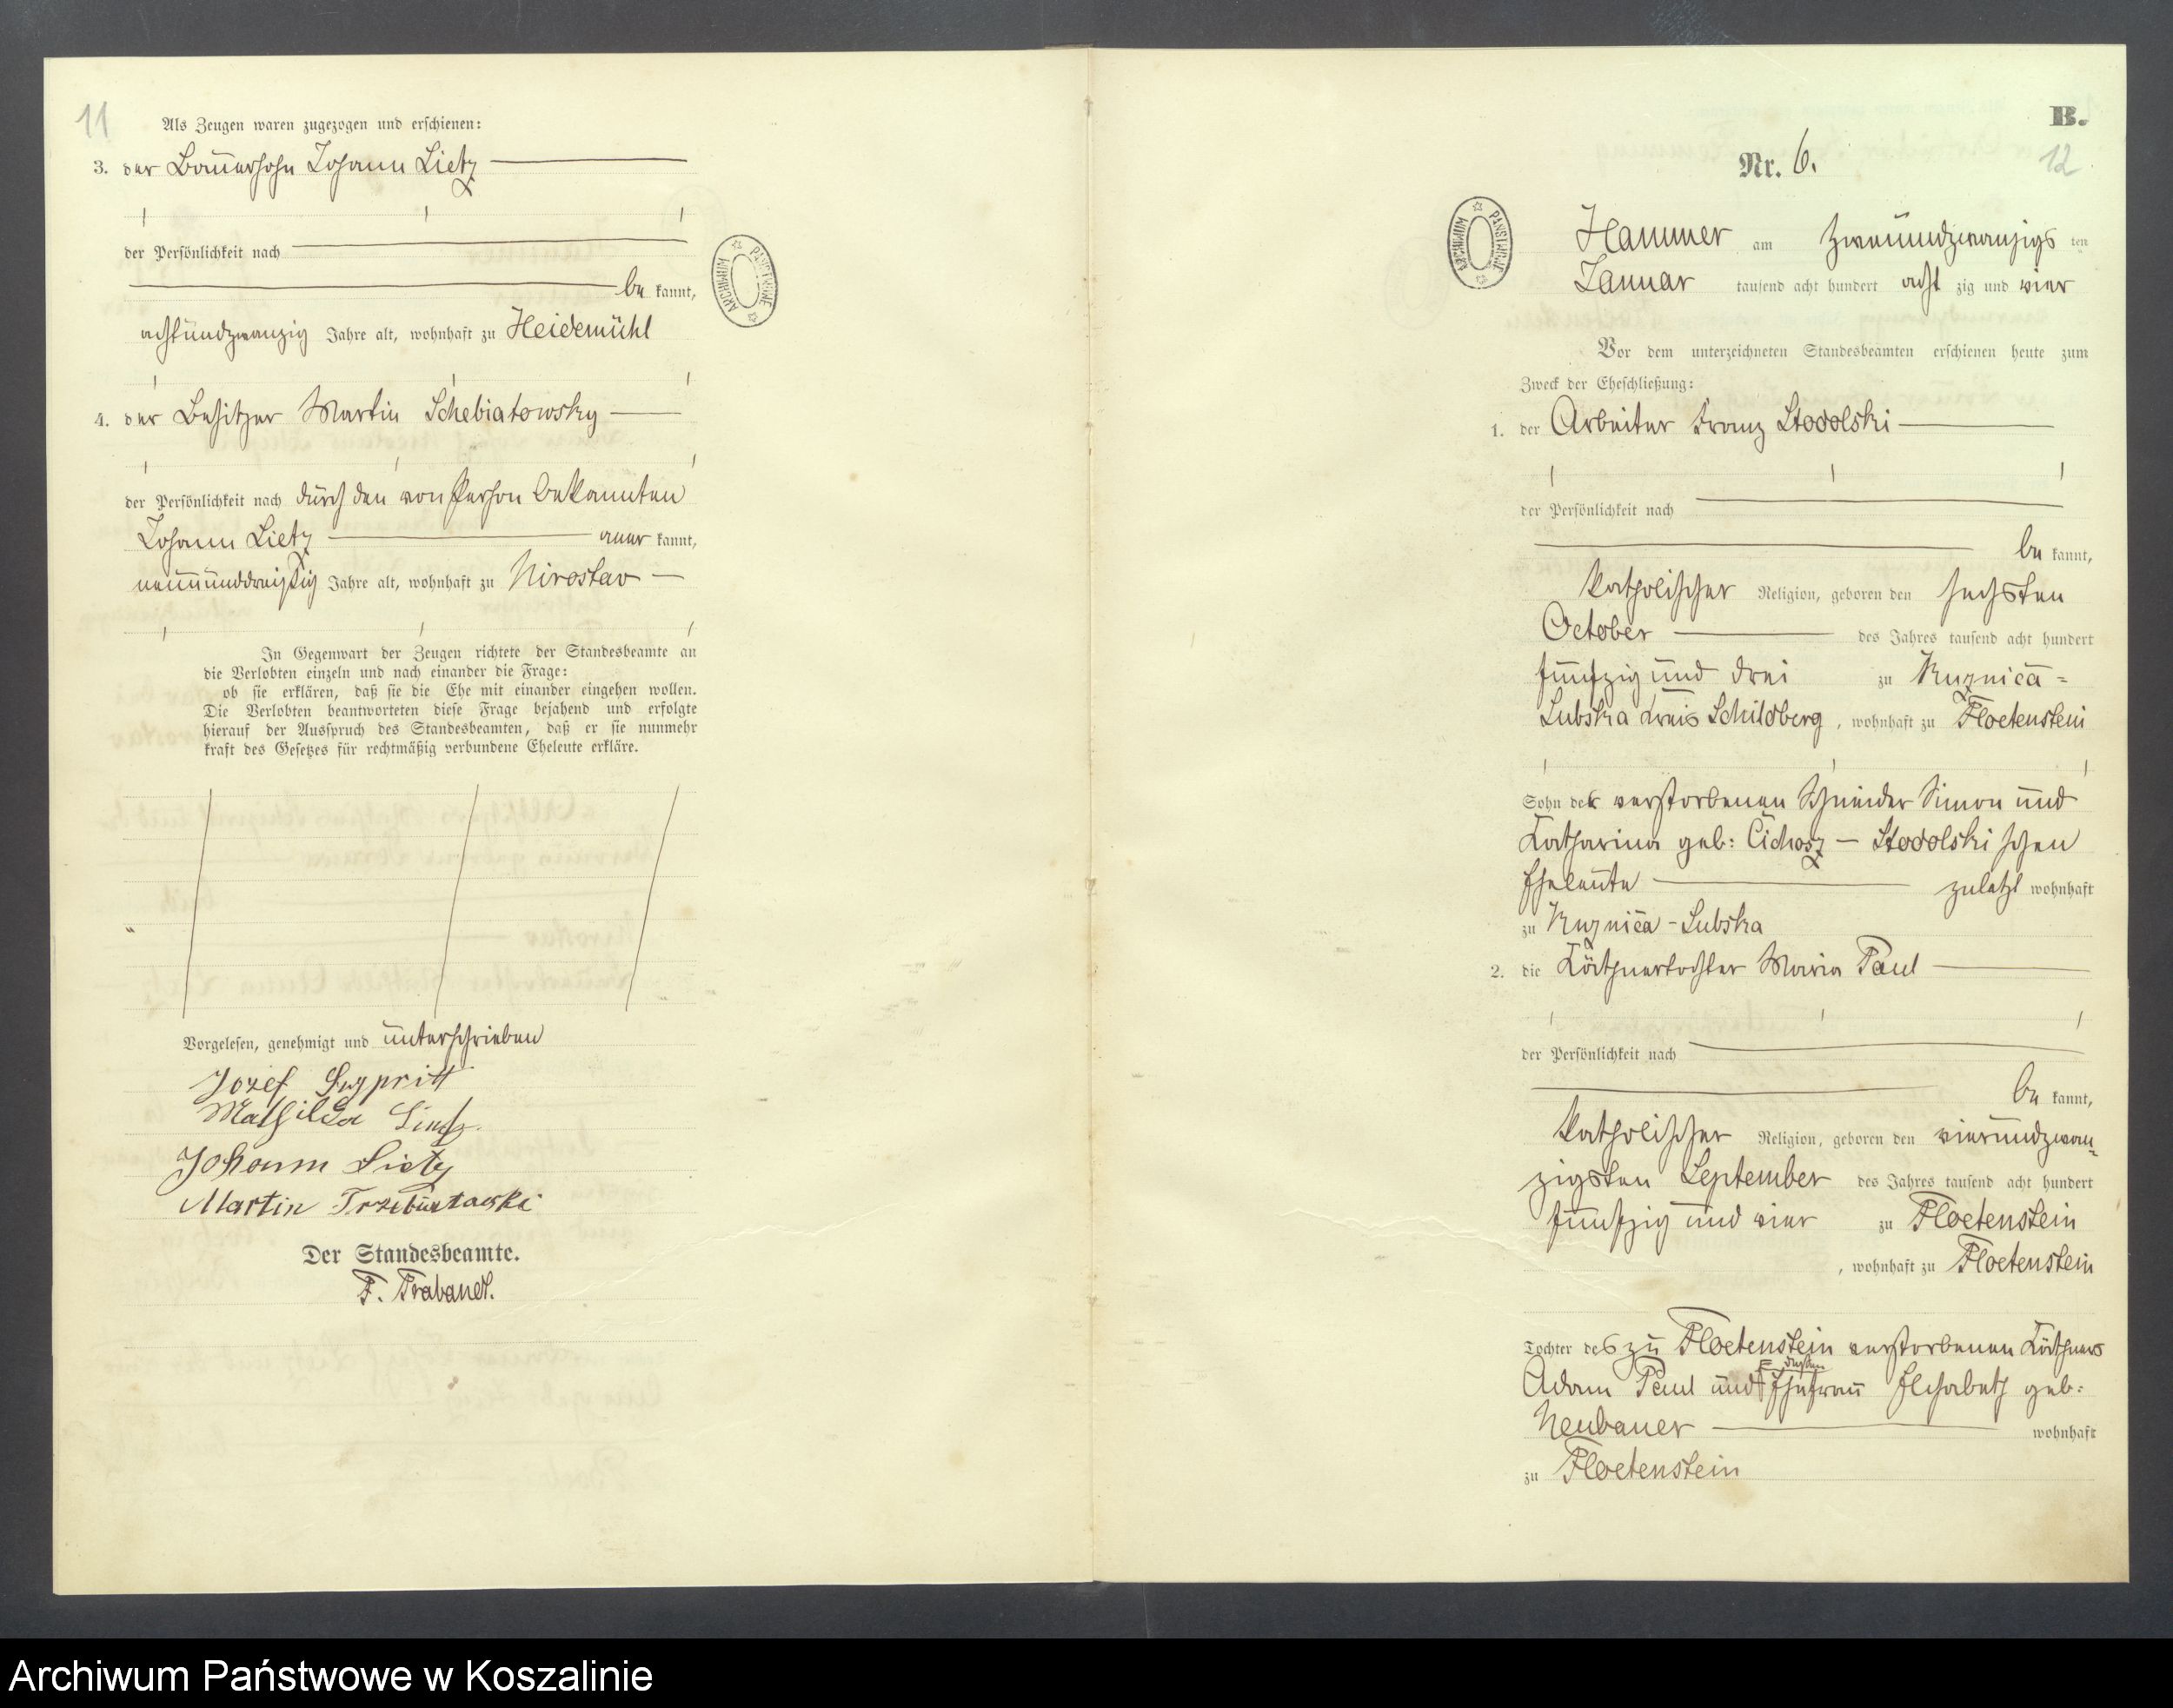 11
Als Zeugen waren zugezogen und erschienen:
3. der Bauersohn Johann Lietz
der Persönlichkeit nach
be kannt,
achtundzwanzig Jahre alt, wohnhaft zu Heidemühl
4. der Besitzer Martin Schebiatowsky
der Persönlichkeit nach durch den von Person bekannten
Johann Lietz aner kannt,
neununddreißig Jahre alt, wohnhaft zu Nirostaw
In Gegenwart der Zeugen richtete der Standesbeamte an
die Verlobten einzeln und nach einander die Frage:
ob sie erklären, daß sie die Ehe mit einander eingehen wollen.
Die Verlobten beantworteten diese Frage bejahend und erfolgte
hierauf der Ausspruch des Standesbeamten, daß er sie nunmehr
kraft des Gesetzes für rechtmäßig verbundene Eheleute erkläre.
Vorgelesen, genehmigt und unterschrieben
Jozef
Mathilda Lietz.
Johann Lietz
Martin
Der Standesbeamte.
F. Prabandt.
ARCHIWUM PAŃSTWOWE
B.
12
Nr. 6.
ARCHIWUM PAŃSTWOWE
Hammer am zweiundzwanzigs ten
Januar tausend acht hundert acht zig und vier
Vor dem unterzeichneten Standesbeamten erschienen heute zum
Zweck der Eheschließung:
1. der Arbeiter Franz Stodolski
der Persönlichkeit nach
be kannt,
katholischer Religion, geboren den sechsten
October des Jahres tausend acht hundert
fünfzig und drei zu Kuznica=
Lubska Kreis Schildberg, wohnhaft zu Floetenstein
Sohn der verstorbenen Schneider Simon und
Katharina geb: Cichosz – Stodolski schen
Eheleute zuletzt wohnhaft
zu Kuznica-Lubska
2. die Käthnertochter Maria Paul
der Persönlichkeit nach
be kannt,
katholischer Religion, geboren den vierundzwan=
zigsten September des Jahres tausend acht hundert
fünfzig und vier zu Floetenstein
, wohnhaft zu Floetenstein
Tochter des zu Floetenstein verstorbenen Käthners
Adam Paul und dessen Ehefrau Elisabeth geb:
Neubauer wohnhaft
zu Floetenstein
Archiwum Państwowe w Koszalinie